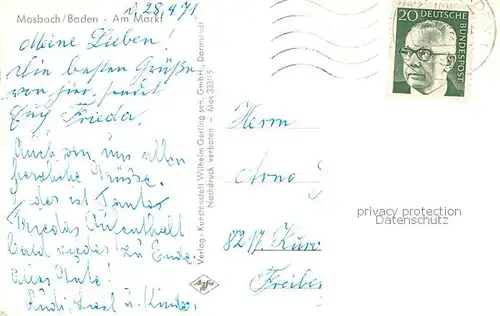 Mosbach/Baden · Am Markt
d. 28.4.71
Meine Lieben!
Die besten Grüße
von hier, sendet
Euch Frieda.
Auch von uns allen
herzliche Grüsse.
Leider ist Tantes
Friedas Aufenthalt
bald wieder zu Ende.
Alles Gute!
Rudi, u. Kinder
Verlag · Kunstanstalt Wilhelm Gerling sen. GmbH., Darmstadt
Nachdruck verboten — Mos 3331/5
Agfa
20 DEUTSCHE BUNDESPOST
Herrn
Arno
8217
privacy protection
Datenschutz